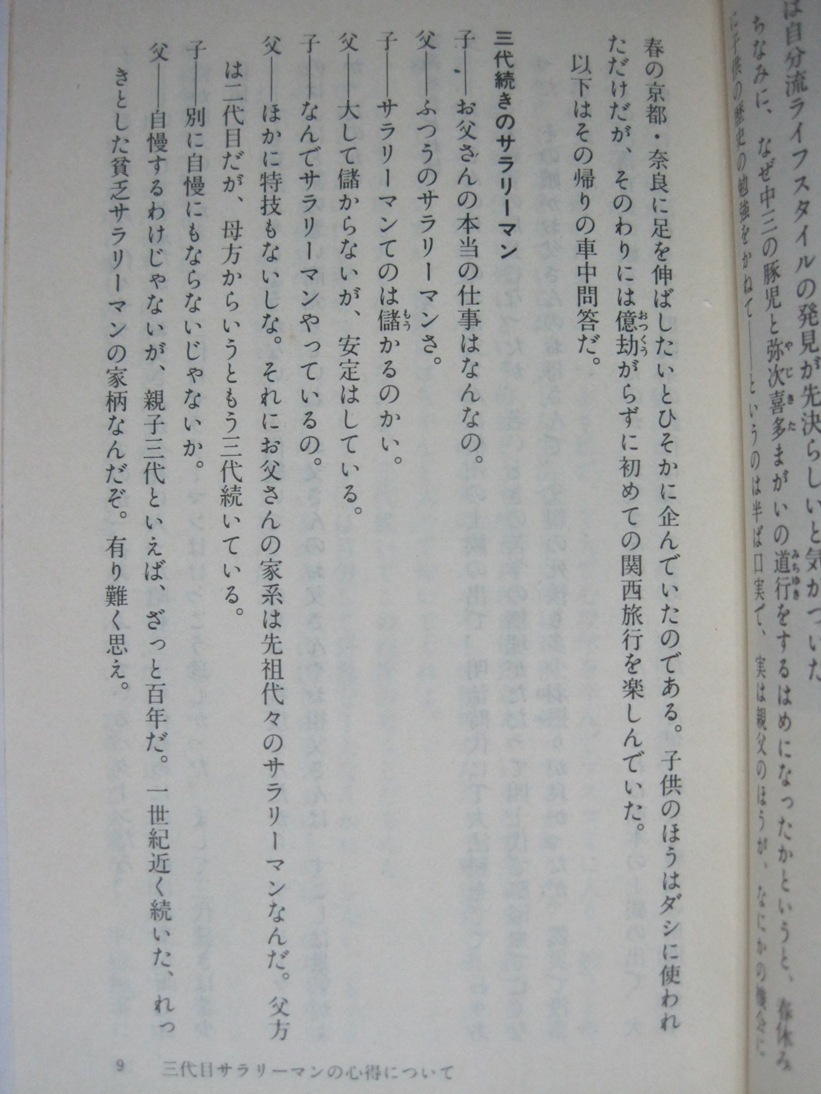 は自分流ライフスタイルの発見が先決らしいと気がついた
ちなみに、なぜ中三の豚児と弥次喜多まがいの道行をするはめになったかというと、春休み
に子供の歴史の勉強をかねて――というのは半ば口実で、実は親父のほうが、なにかの機会に
春の京都・奈良に足を伸ばしたいとひそかに企んでいたのである。子供のほうはダシに使われ
ただけだが、そのわりには億劫がらずに初めての関西旅行を楽しんでいた。
以下はその帰りの車中問答だ。
三代続きのサラリーマン
子――お父さんの本当の仕事はなんなの。
父――ふつうのサラリーマンさ。
子――サラリーマンてのは儲かるのかい。
父――大して儲からないが、安定はしている。
子――なんでサラリーマンやっているの。
父――ほかに特技もないしな。それにお父さんの家系は先祖代々のサラリーマンなんだ。父方
は二代目だが、母方からいうともう三代続いている。
子――別に自慢にもならないじゃないか。
父――自慢するわけじゃないが、親子三代といえば、ざっと百年だ。一世紀近く続いた、れっ
きとした貧乏サラリーマンの家柄なんだぞ。有り難く思え。
9 三代目サラリーマンの心得について